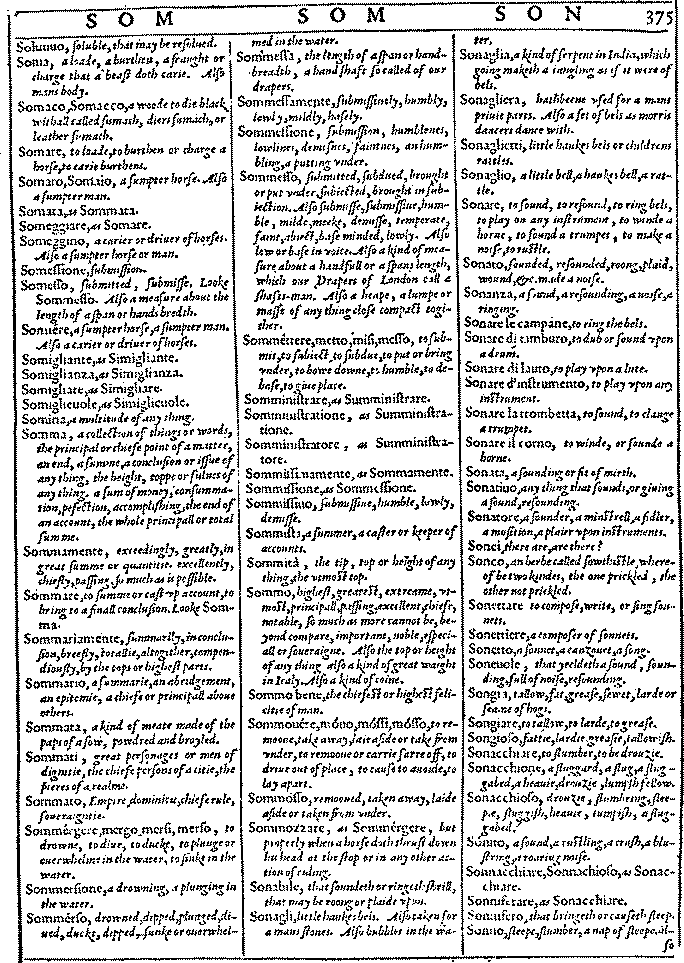 SOM SOM SON 375
Soluuo, soluble, that may be resolued.
Soma, a loade, a burthen, a fraught or
charge that a beast doth carie. Also
mans body.
Somaco, Somacco, a woode to die black
withall called sumash, diers sumach, or
leather sumach.
Somare, to loade, to burthen or charge a
horse, to carie burthens.
Somaro, Somaio, a sumpter horse. Also
a sumpter man.
Somata, as Sommata.
Someggiare, as Somare.
Someggino, a carier or driuer of horses.
Also a sumpter horse or man.
Somessione, submission.
Somesso, submitted, submisse. Looke
Sommesso. Also a measure about the
length of a span or hands bredth.
Somiere, a sumpter horse, a sumpter man.
Also a carier or driuer of horses.
Somigliante, as Simigliante.
Somiglianza, as Simiglianza.
Somigliare, as Simigliare.
Somiglieuole, as Simiglieuole.
Somina, a multitude of any thing.
Somma, a collection of things or words,
the principal or chiefe point of a matter,
an end, a summe, a conclusion or issue of
any thing, the height, toppe or fulnes of
any thing. a sum of money, consumma-
tion, pefection, accomplishing, the end of
an account, the whole principall or total
summe.
Sommamente, exceedingly, greatly, in
great summe or quantitie. excellently,
chiefly, passing, so much as is possible.
Sommare, to summe or cast vp account, to
bring to a finall conclusion. Looke Som-
ma.
Sommariamente, summarily, in conclu-
sion, breefly, totallie, altogither, compen-
diously, by the tops or highest parts.
Sommario, a summarie, an abridgement,
an epitemie, a chiefe or principall aboue
others.
Sommata, a kind of meate made of the
paps of a sow, powdred and broyled.
Sommati, great personages or men of
dignitie, the chiefe persons of a citie, the
pieres of a realme.
Sommato, Empire, dominion, chiefe rule,
soueraigntie.
Sommérgere, mergo, mersi, merso, to
drowne, to diue, to ducke, to plunge or
ouerwhelme in the water, to sinke in the
water.
Sommersione, a drowning, a plunging in
the water.
Sommérso, drowned, dipped, plunged, di-
ued, duckt, dipped, sunke or ouerwhel-
med in the water.
Sommessa, the length of a span or hand-
breadth, a handshaft so called of our
drapers.
Sommessamente, submissiuely, humbly,
lowly, mildly, basely.
Sommessione, submission, humblenes,
lowlines, demisnes, faintnes, an hum-
bling, a putting vnder.
Sommesso, submitted, subdued, brought
or put vnder, subiected, brought in sub-
iection. Also submisse, submissiue, hum-
ble, milde, meeke, demisse, temperate,
tame, abiect, base minded, lowly. Also
low or base in voice. Also a kind of mea-
sure about a handfull or a spans length,
which our Drapers of London call a
shaft-man. Also a heape, a lumpe or
masse of any thing close compact togi-
ther.
Sommétere, metto, misi, messo, to sub-
mit, to subiect, to subdue, to put or bring
vnder, to bowe downe, to humble, to de-
base, to giue place.
Somministrare, as Summistrare.
Somministratione, as Sumministra-
tione.
Somministratore, as Sumministra-
tore.
Sommissimamente, as Sommamente.
Sommissione, as Sommessione.
Sommissiuo, submissiue, humble, lowly,
demisse.
Sommista, a summer, a caster or keeper of
accounts.
Sommità, the tip, top or height of any
thing, the vtmost top.
Sommo, highest, greatest, extreame, vt-
most, principall, passing, excellent, chiefe,
notable, so much as more cannot be, be-
yond compare, important, noble, especi-
all or soueraigne. Also the top or height
of any thing. also a kind of great waight
in Italy. Also a kind of coine.
Sommo bene, the chiefest or highest feli-
citie of man.
Sommouére, móuo, móssi, mósso, to re-
mooue, take away, laie aside or take from
vnder, to remooue or carrie farre off, to
driue out of place, to cause to auoide, to
lay apart.
Sommósso, remooued, taken away, laide
aside or taken from vnder.
Sommozzare, as Sommérgere, but
properly when a horse doth thrust down
his head at the stop or in any other ac-
tion of riding.
Sonabile, that soundeth or ringeth shrill,
that may be roong or plaide vpon.
Sonagli, little hankes bels. Also taken for
a mans stones. Also bubbles in the wa-
ter.
Sonaglia, a kind of serpent in India, which
going maketh a iangling as if it were of
bels.
Sonagliera, hath beene vsed for a mans
priuie parts. Also a set of bels as morris
dancers dance with.
Sonaglietti, little haukes bels or childrens
rattles.
Sonaglio, a little bell, a haukes bell, a rat-
tle.
Sonare, to sound, to resound, to ring bels,
to play on any instrument, to winde a
horne, to sound a trumpet, to make a
noise, to rustle.
Sonato, sounded, resounded, roong, plaid,
wound, &c. made a noise.
Sonanza, a sound, a resounding, a noise, a
ringing.
Sonare le campáne, to ring the bels.
Sonare di tamburo, to dub or sound vpon
a drum.
Sonare di lauto, to play vpon a lute.
Sonare d'instrumento, to play vpon any
instrument.
Sonare la trombetta, to sound, to clange
a trumpet.
Sonare il corno, to winde, or sounde a
horne.
Sonata, a sounding or fit of mirth.
Sonatiuo, any thing that sounds, or giuing
a sound, resounding.
Sonatore, a sounder, a minstrell, a fidler,
a musition, a plaier vpon instruments.
Sonci, there are, are there?
Sonco, an herbe called sowthistle, where-
of be two kindes, the one prickled, the
other not prickled.
Sonettare to compose, write, or sing son-
nets.
Sonettiere, a composer of sonnets.
Sonetto, a sonnet, a canzonet, a song.
Soneuole, that yeeldeth a sound, soun-
ding, full of noise, resounding.
Songia, tallow, fat, grease, sewet, larde or
seame of hogs.
Songiare, to tallow, to larde, to grease.
Songioso, fattie, lardie, greasie, tallowish.
Sonacchiare, to slumber, to be drouzie.
Sonacchione, a sluggard, a slug, a slug-
gabed, a heauie, drouzie, lumpish fellow.
Sonacchioso, drouzie, slumbring, slee-
pie, sluggish, heauie, lumpish, a slug-
gabed.
Sónito, a sound, a rustling, a crash, a blu-
string, a roaring noise.
Sonnacchiare, Sonnachioso, as Sonac-
chiare.
Sonniferare, as Sonacchiare.
Sonnifero, that bringeth or causeth sleep.
Sonno, sleepe, slumber, a nap of sleepe. al-
so